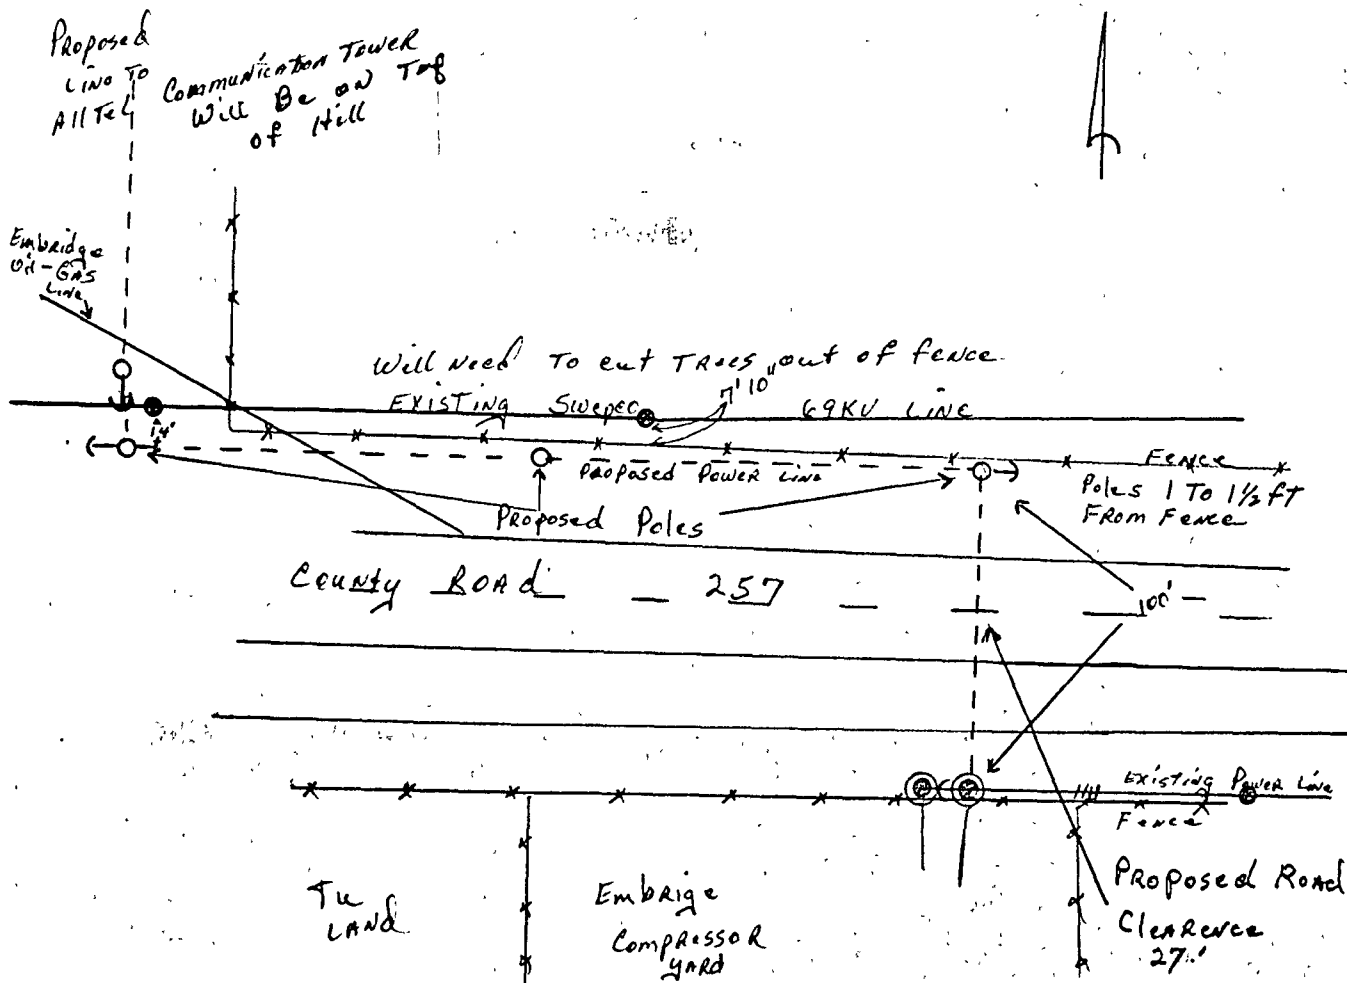 Proposed
Line To
AllTel
Communication Tower
Will Be on Top
of Hill
Embridge
Oil-Gas
Line
Will Need To cut Trees out of fence
7'10"
Existing Swepco 69KV Line
14'
Proposed Power Line
Fence
Poles 1 To 1½ ft
From Fence
Proposed Poles
County Road 257
100'
Existing Power Line
Fence
Tu
Land
Embrige
Compressor
Yard
Proposed Road
Clearence
27'